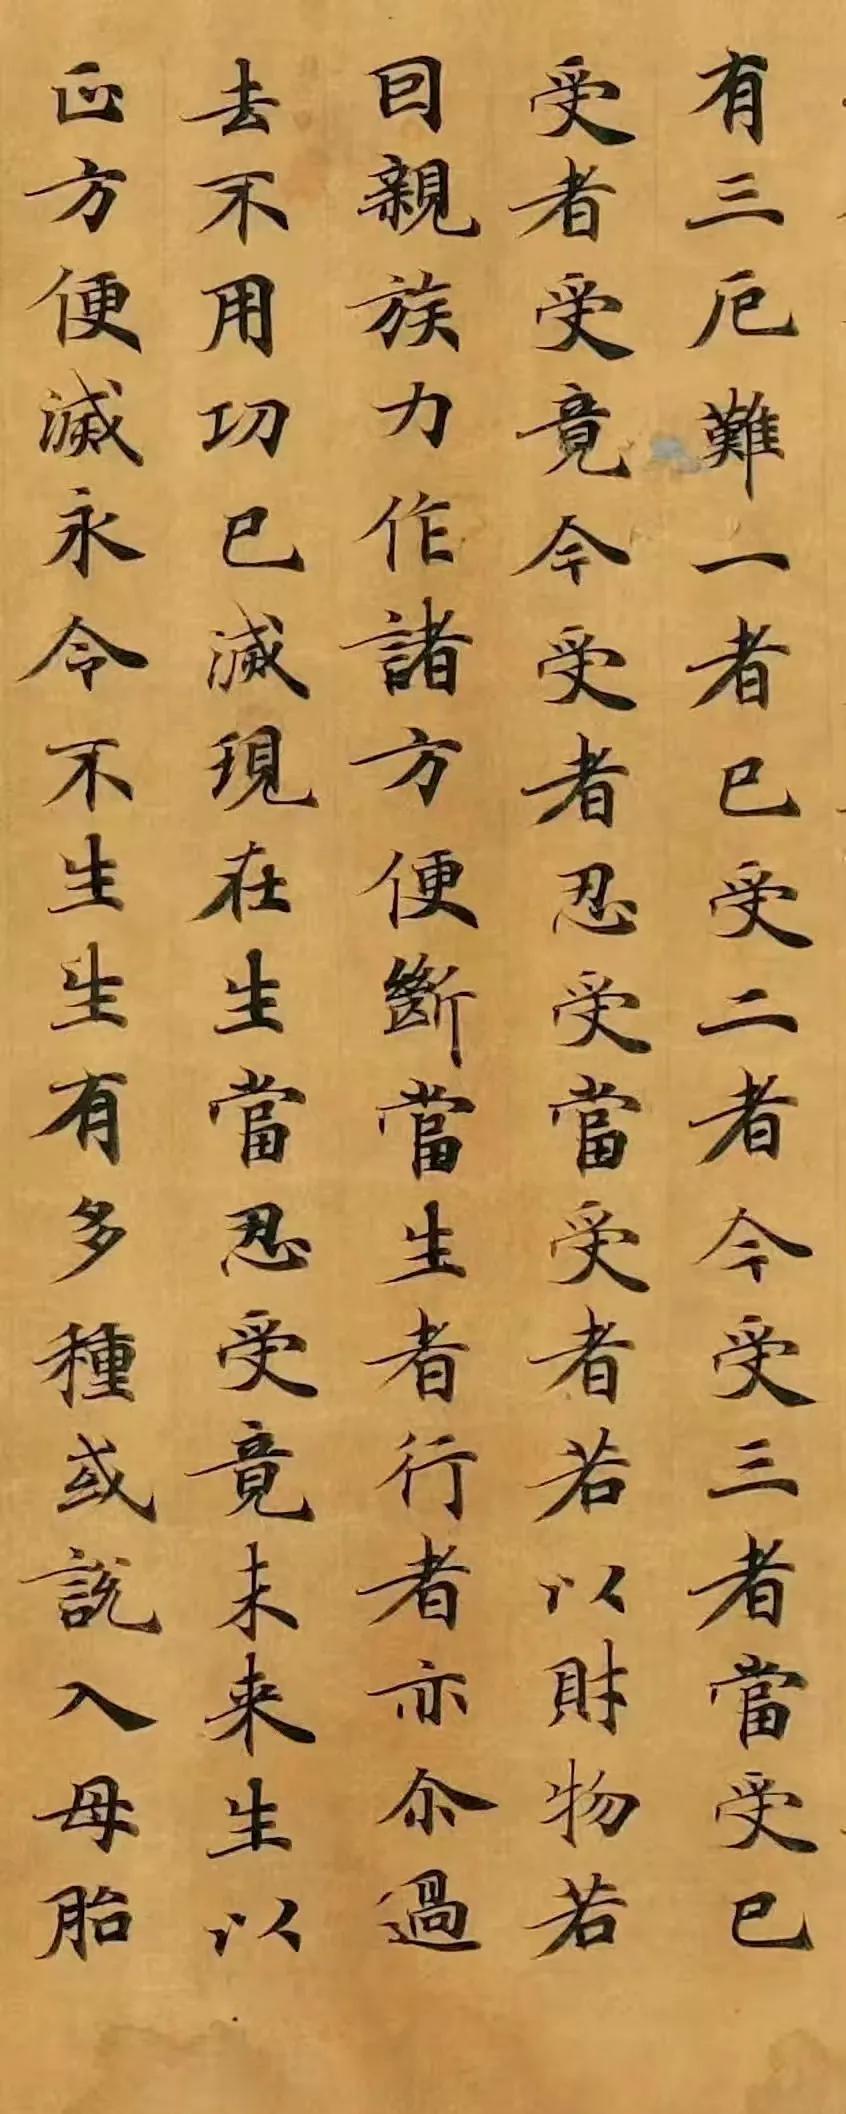 有三厄難一者已受二者今受三者當受已
受者受竟今受者忍受當受者若以財物若
囙親族力作諸方便斷當生者行者亦尒過
去不用功已滅現在生當忍受竟未来生以
正方便滅永令不生生有多種或說入母胎